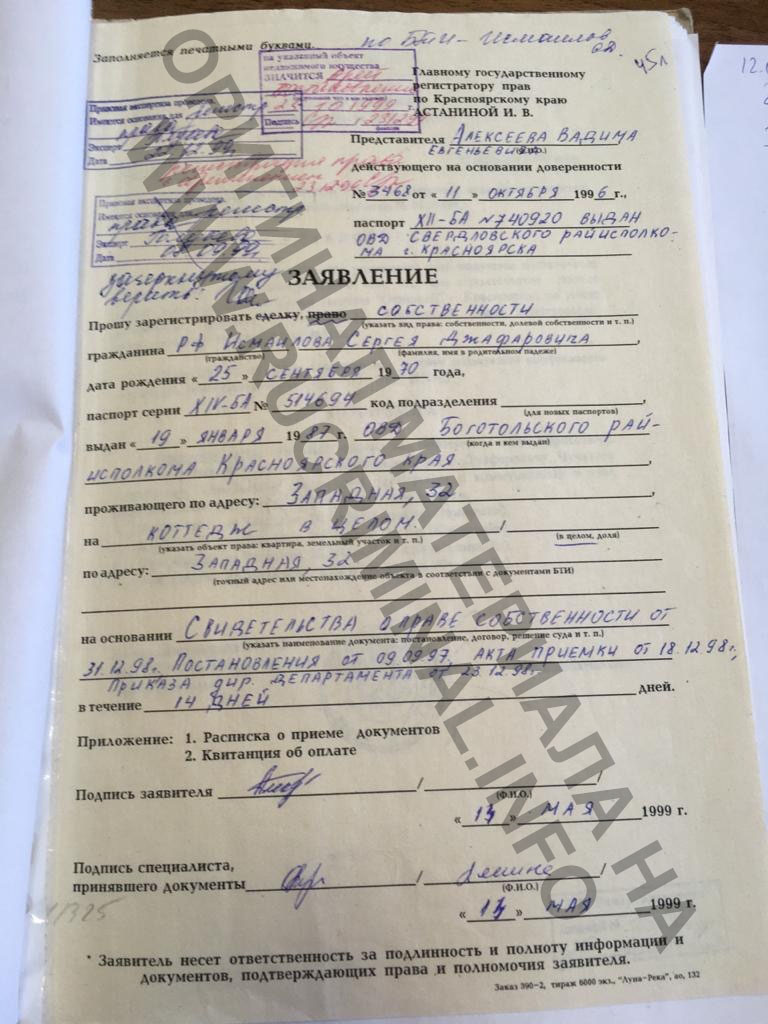 Заполняется печатными буквами.
по БТИ - Исмаилов
на указанный объект
недвижимого имущества
ЗНАЧИТСЯ
Подпись
Правовая экспертиза проведена
Имеются основания для
права
Эксперт
Дата
Главному государственному
регистратору прав
по Красноярскому краю
АСТАНИНОЙ И. В.
Представителя Алексеева Вадима
Евгеньевича
(Ф.И.О.)
действующего на основании доверенности
№ 3468 от « 11 » октября 1996 г.,
Правовая экспертиза проведена
Имеются основания для
права
Эксперт
Дата
паспорт XII-БА №740920 выдан
ОВД Свердловского райисполко-
ма г. Красноярска
зачеркнутому
верить:
ЗАЯВЛЕНИЕ
Прошу зарегистрировать сделку, право собственности
(указать вид права: собственности, долевой собственности и т. п.)
гражданина РФ Исмаилова Сергея Джафаровича,
(гражданство) (фамилия, имя в родительном падеже)
дата рождения « 25 » сентября 1970 года,
паспорт серии XIV-БА № 514694 код подразделения
(для новых паспортов)
выдан « 19 » января 1987 г. ОВД Боготольского рай-
(когда и кем выдан)
исполкома Красноярского края
проживающего по адресу: Западная, 32
на коттедж в целом. /
(указать объект права: квартира, земельный участок и т. п.) (в целом, доля)
по адресу: Западная, 32
(точный адрес или местонахождение объекта в соответствии с документами БТИ)
на основании Свидетельства о праве собственности от
(указать наименование документа: постановление, договор, решение суда и т. п.)
31.12.98г. Постановления от 09.09.97, акта приемки от 18.12.98г.,
Приказа дир. департамента от 23.12.98г.
в течение 14 дней дней.
Приложение: 1. Расписка о приеме документов
2. Квитанция об оплате
Подпись заявителя / /
(Ф.И.О.)
« 14 » мая 1999 г.
Подпись специалиста,
принявшего документы / /
(Ф.И.О.)
« 14 » мая 1999 г.
* Заявитель несет ответственность за подлинность и полноту информации и
документов, подтверждающих права и полномочия заявителя.
Заказ 390-2, тираж 6000 экз., "Луна-Река", ао, 132
ОРИГИНАЛ МАТЕРИАЛА НА
WWW.RUCRIMINAL.INFO